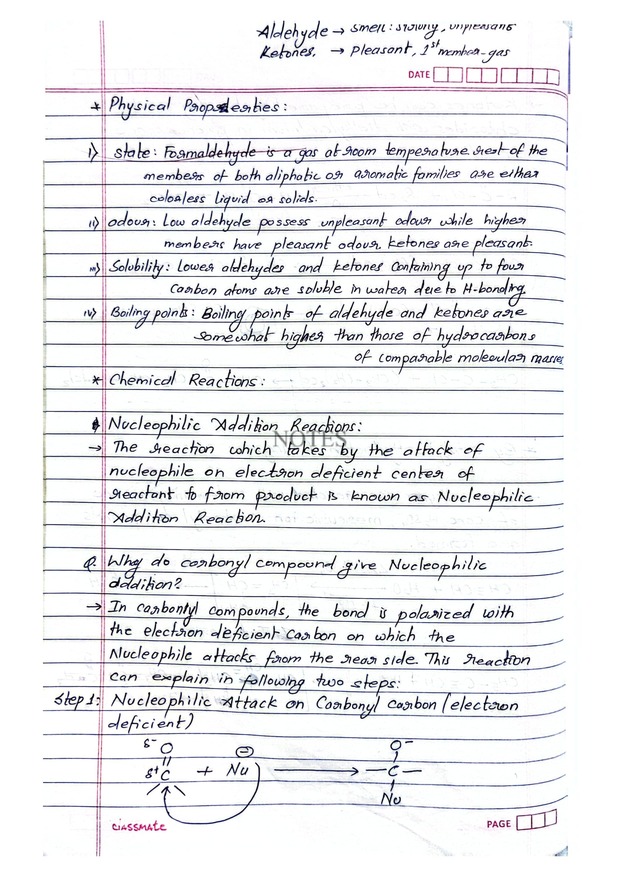 Aldehyde → smell: strong, unpleasant
Ketones. → Pleasant, 1st member-gas
DATE
* Physical Properties:
i) State: Formaldehyde is a gas at room temperature. rest of the
members of both aliphatic or aromatic families are either
colorless liquid or solids.
ii) odour: Low aldehyde possess unpleasant odour while higher
members have pleasant odour. ketones are pleasant.
iii) Solubility: Lower aldehydes and ketones containing up to four
Carbon atoms are soluble in water due to H-bonding.
iv) Boiling points: Boiling points of aldehyde and ketones are
somewhat higher than those of hydrocarbons
of comparable molecular masses
* Chemical Reactions:
Nucleophilic Addition Reactions:
NOTES
→ The reaction which takes by the attack of
nucleophile on electron deficient center of
reactant to from product is known as Nucleophilic
Addition Reaction.
Q. Why do carbonyl compound give Nucleophilic
addition?
→ In carbonyl compounds, the bond is polarized with
the electron deficient carbon on which the
Nucleophile attacks from the rear side. This reaction
can explain in following two steps:
Step 1: Nucleophilic Attack on Carbonyl carbon (electron
deficient)
δ- O O-
δ+ C + Nu → -C-
Nu
classmate PAGE